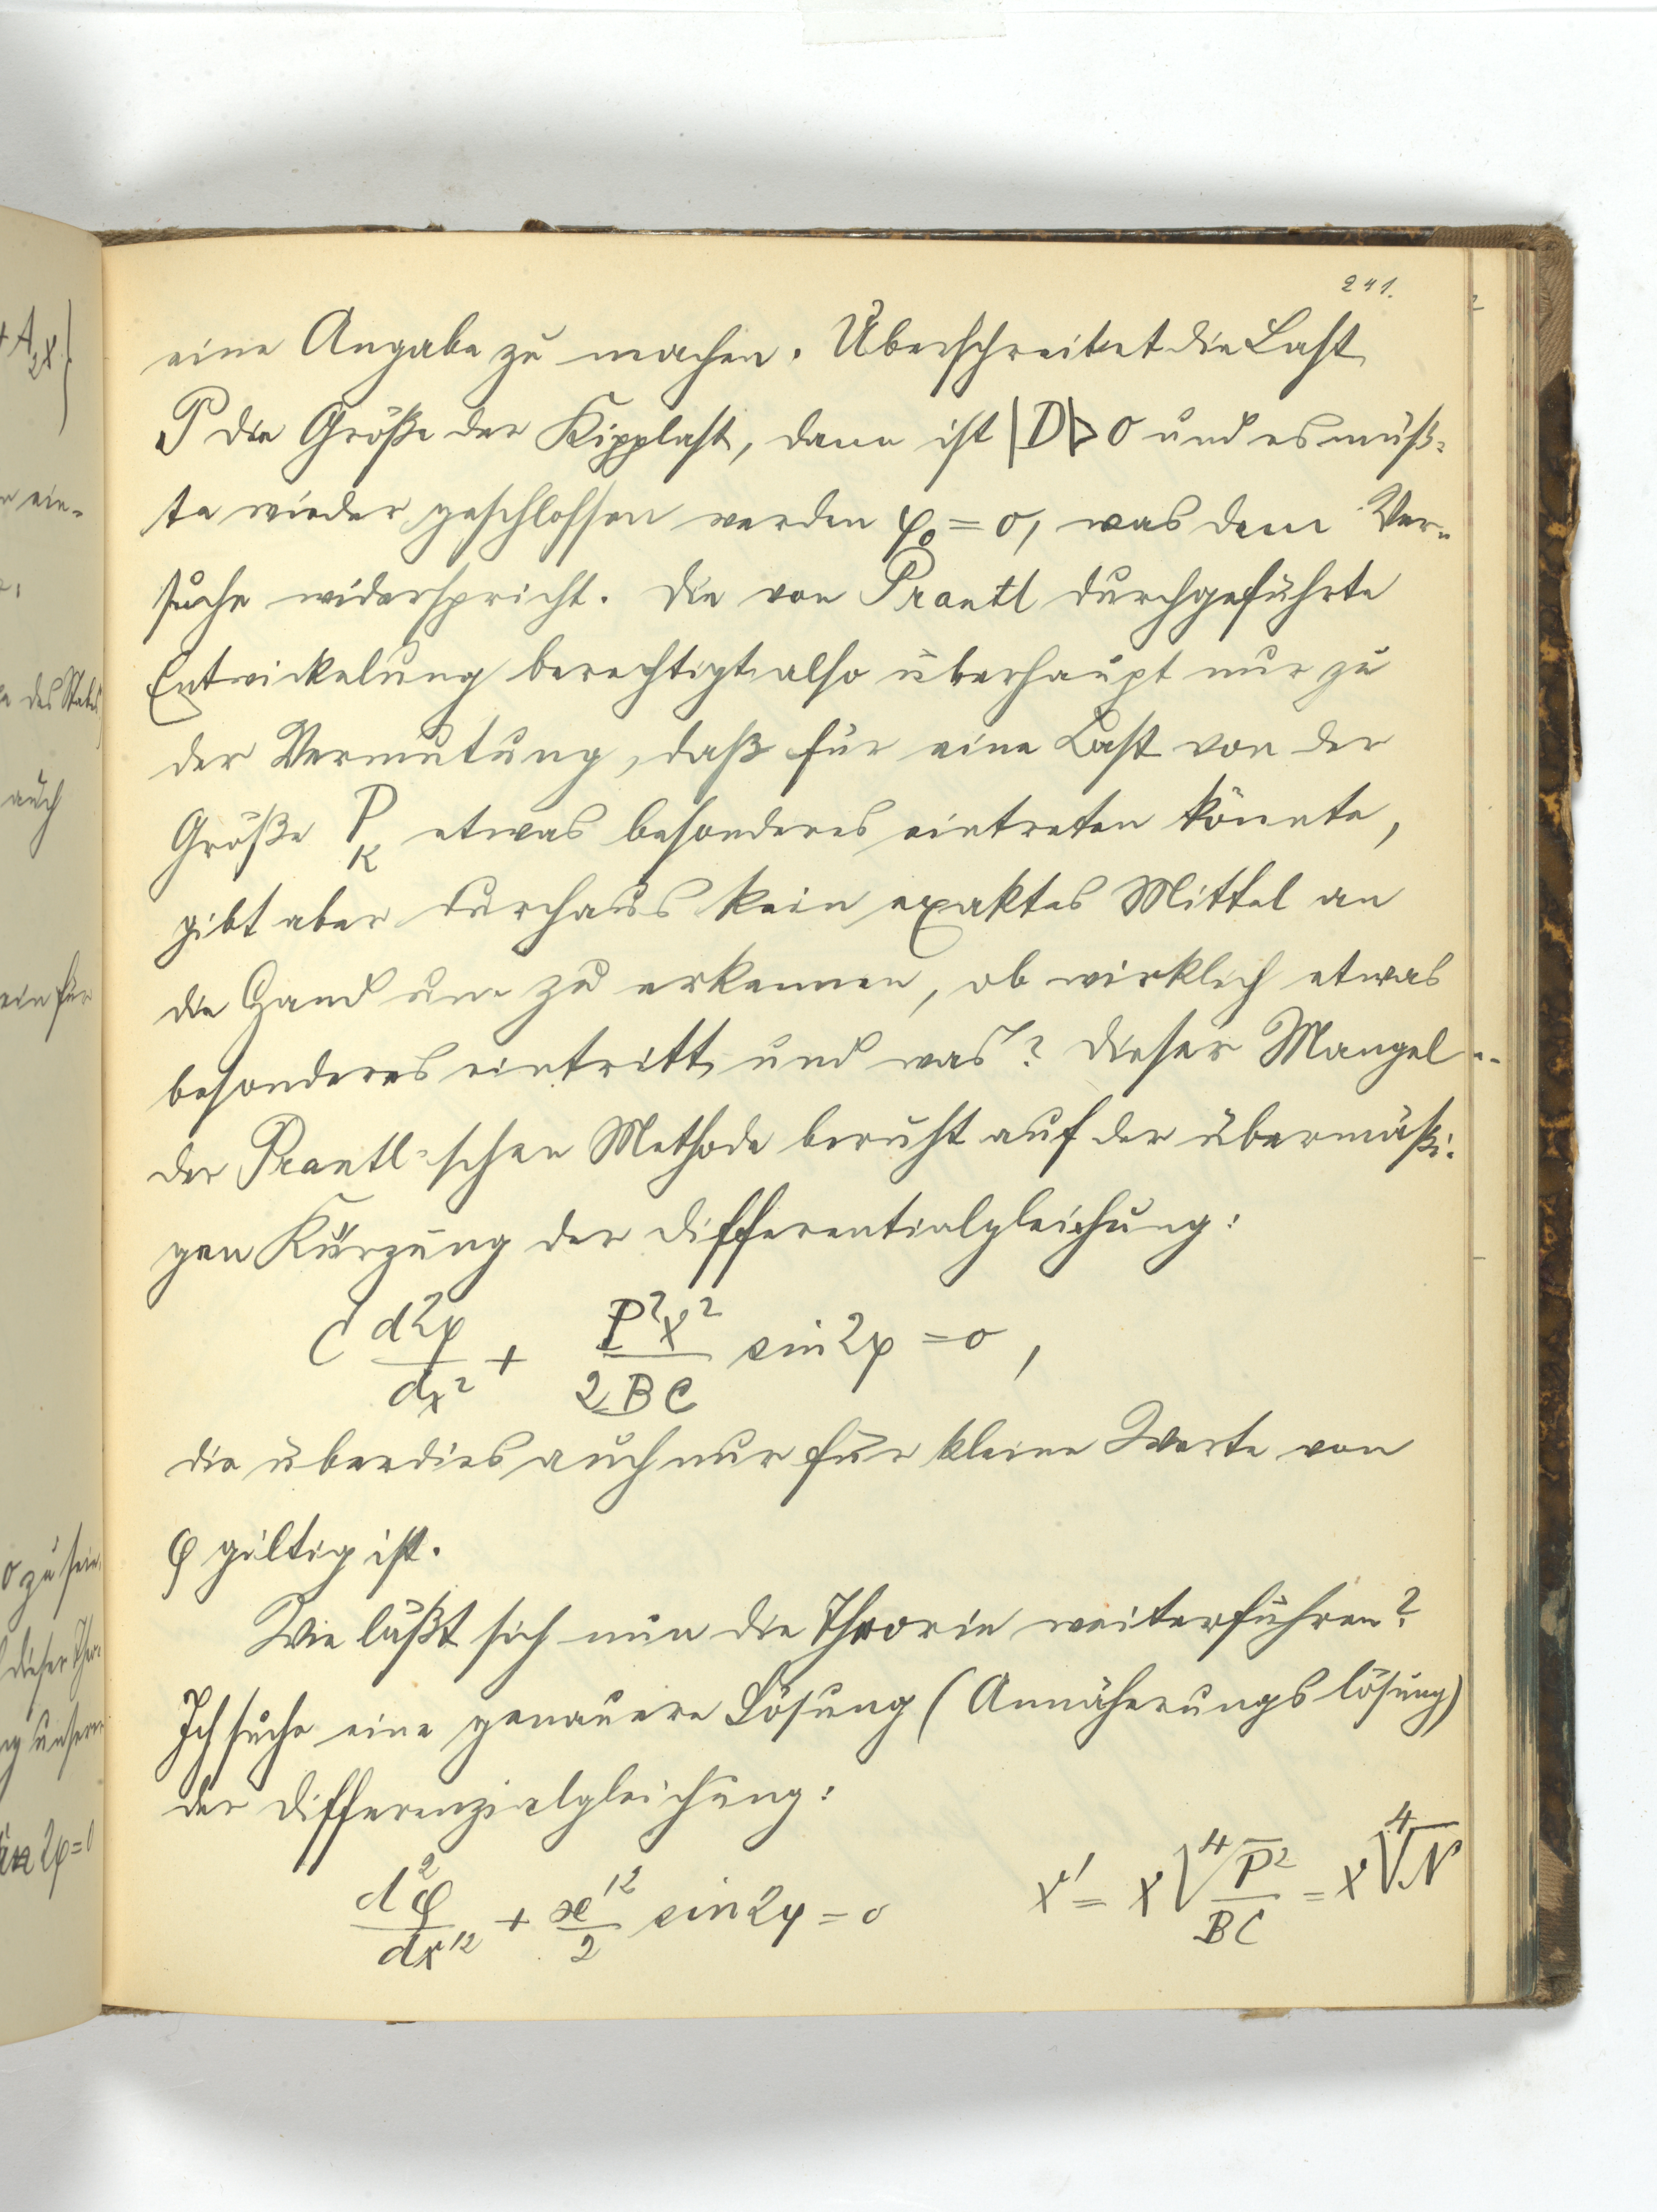 241.
eine Angabe zu machen. Überschreitet die Last
P die Größe der Kipplast, dann ist |D|>0 und es müß-
te wieder geschlossen werden φ₀ = 0, was dem Ver-
suche widerspricht. Die von Prantl durchgeführte
Entwickelung berechtigt also überhaupt nur zu
der Vermutung, daß für eine Last von der
Größe P_K etwas besonderes eintreten könnte,
gibt aber durchaus kein exaktes Mittel an
die Hand um zu erkennen, ob wirklich etwas
besonderes eintritt und was? Dieser Mangel
der Prantl-schen Methode beruht auf der übermäßi-
gen Kürzung der Differentialgleichung:
C d²φ/dx² + P²x²/2BC sin 2φ = 0,
die überdies auch nur für kleine Werte von
φ gültig ist.
Wie läßt sich nun die Theorie weiterführen?
Ich suche eine genauere Lösung (Annäherungslösung)
der Differenzialgleichung:
d²φ/dx'² + x'²/2 sin 2φ = 0 x' = x ⁴√P²/BC = x ⁴√N
+A₂x}
ein-
des Stabes
auch
ein für
0 zu sein.
dieser Theo-
unserer
sin 2φ=0